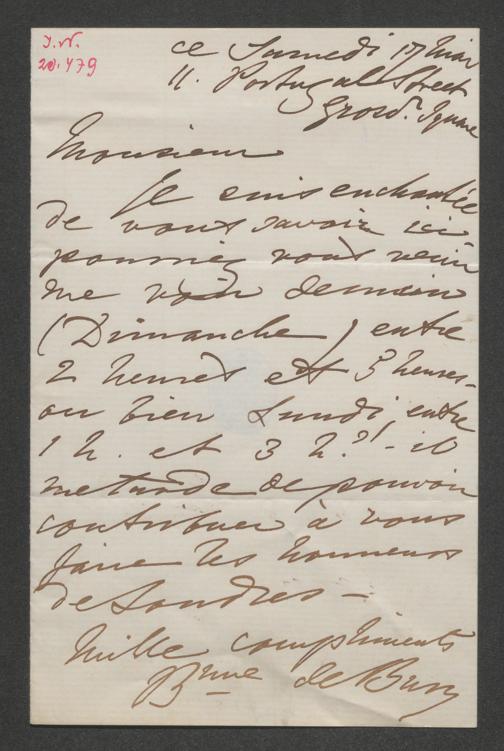 J.N.
20.479
ce Samedi 17 Mai
11. Portugal Street
Grosv.r Square
Monsieur
Je suis enchantée
de vous savoir ici
pourriez vous venir
me voir demain
(Dimanche) entre
2 heures et 5 heures -
ou bien Lundi, entre
1 h. et 3 h.? - il
me tarde de pouvoir
contribuer à vous
faire les honneurs
de Londres -
Mille compliments
Bnne de Bury